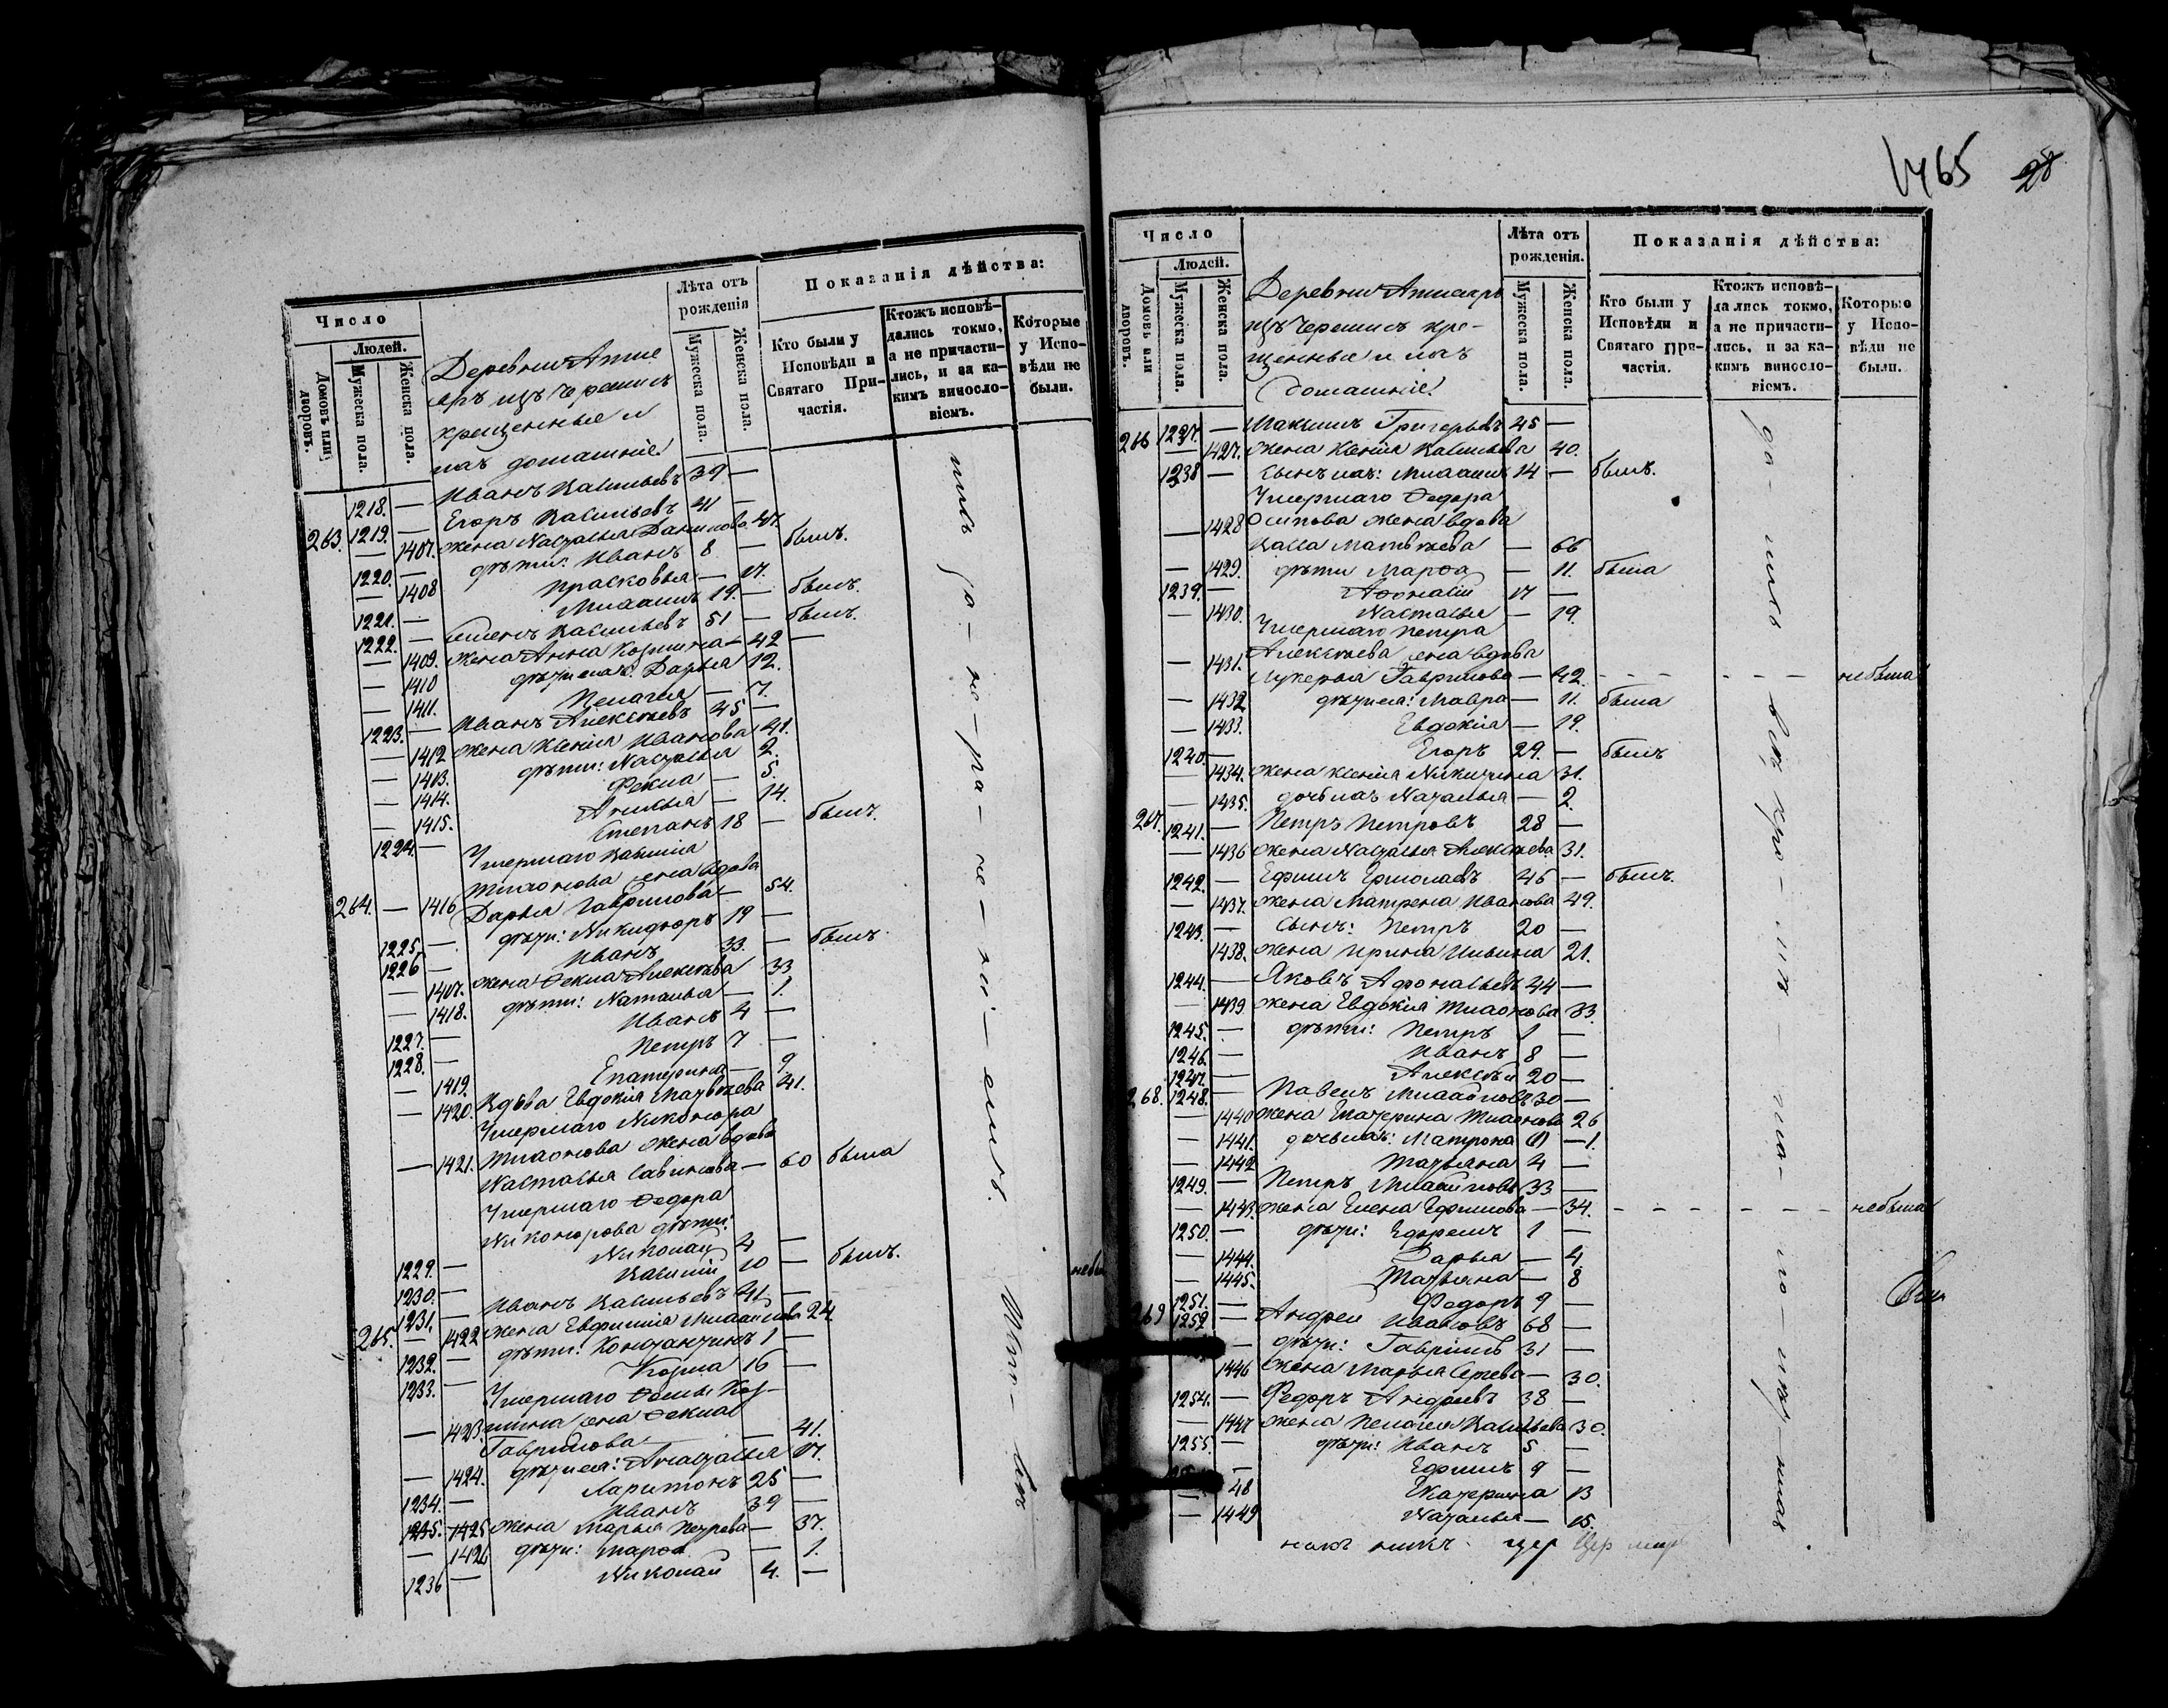 Число
Людей.
Домовъ или дворовъ.
Мужеска пола.
Женска пола.
Деревни
крещенные и
ихъ домашніе
Лѣта отъ рожденія
Мужеска пола.
Женска пола.
Показанія дѣйства:
Кто были у Исповѣди и Святаго При-
частія.
Ктожъ исповѣ-
дались токмо,
а не причасти-
лись, и за ка-
кимъ виносло-
віемъ.
Которые
у Испо-
вѣди не
были.
1218. — Иванъ Васильевъ 39 —
263. 1219. — Егоръ Васильевъ 41 —
— 1407. жена Настасья Данилова 47.
1220. — дѣти: Иванъ 8 — былъ.
— 1408 Прасковья — 17.
1221. — Михаилъ 19. — былъ.
1222. — Семенъ Васильевъ 51 — былъ.
— 1409. жена Анна Козмина — 42
— 1410 дѣти ихъ: Дарья 12.
— 1411. Пелагея — 7.
1223. — Иванъ Алексѣевъ 45 —
— 1412 жена Ксенія Иванова 41.
— 1413. дѣти: Настасья 2.
— 1414. Фекла — 5.
— 1415. Анисья — 14.
1224. — Степанъ 18 — былъ.
Умершаго Василія
Тихонова жена вдова
264. — 1416 Дарья Гаврилова — 54.
1225. — дѣти: Никифоръ 19 —
1226 — Иванъ 33. — былъ
— 1417. жена Фекла Алексѣева 33
— 1418. дѣти: Наталья — 1.
1227. — Иванъ 4 —
1228. — Петръ 7 —
— 1419. Екатерина — 9
— 1420. Вдова Евдокія Матвѣева 41.
Умершаго Никонора
— 1421. Тихонова жена вдова
Настасья Савинова — 60 была
Умершаго Федора
Никонорова дѣти:
1229. — Николай 4 —
1230. — Василій 10 — былъ.
265. 1231. — Иванъ Васильевъ 41 —
— 1422 жена Евфимія Михайлова 24
1232. — дѣти: Константинъ 1 —
1233. — Козма 16 —
Умершаго Фомы Коз-
— 1423. мина жена Фекла
Гаврилова — 41.
— 1424. дѣти ея: Анастасья 17.
1234. — Харитонъ 25 —
1235. — Иванъ 39 —
1425 жена Марья Петрова — 37.
— 1426 дѣти: Марѳа — 1.
1236 — Николай 4. —
1465 28
Число
Людей.
Домовъ или дворовъ.
Мужеска пола.
Женска пола.
Деревни
щенные и ихъ
домашніе
Лѣта отъ рожденія.
Мужеска пола.
Женска пола.
Показанія дѣйства:
Кто были у
Исповѣди и
Святаго При-
частія.
Ктожъ исповѣ-
дались токмо,
а не причасти-
лись, и за ка-
кимъ виносло-
віемъ.
Которые
у Испо-
вѣди не
были.
266 1237. — Максимъ Григорьевъ 45 —
— 1427. жена Ксенія Васильева 40.
1238 — сынъ ихъ: Михаилъ 14 — былъ.
Умершаго Федора
— 1428 Осипова жена вдова
Васса Матвѣева — 66
— 1429. дѣти Марѳа — 11. была
1239. — Афонасій 17 —
— 1430. Настасья — 19.
Умершаго Петра
— 1431. Алексѣева жена вдова
Лукерья Гаврилова — 42. небыла
— 1432 дѣти ея: Мавра — 11. была
— 1433. Евдокія — 19.
1240. — Егоръ 29. — былъ
— 1434. жена Ксенія Никитина 31.
— 1435. дочь ихъ Наталья — 2.
267. 1241. — Петръ Петровъ 28 —
— 1436 жена Настасья Алексѣева 31.
1242. — Ефимъ Ермолаевъ 45 — былъ.
— 1437. жена Матрена Иванова 49.
1243. — сынъ: Петръ 20 —
1438. жена Ирина Ильина 21.
1244. — Яковъ Афонасьевъ 44 —
1439. жена Евдокія Тихонова 33.
1245. — дѣти: Петръ 1 —
1246. — Иванъ 8 —
1247. — Алексѣй 20 —
268. 1248. — Павелъ Михайловъ 30 —
— 1440 жена Екатерина Тихонова 26
— 1441. дочь ихъ: Матрона — 1.
— 1442 Татьяна 4 —
1249. — Петръ Михайловъ 33 —
— 1443. жена Елена Ефимова — 34. небыла
1250. — дѣти: Ефремъ 1 —
— 1444. Дарья — 4
— 1445. Татьяна — 8
1251. — Федоръ 9 —
269 1252. — Андрей Ивановъ 68 —
— дѣти: Гаврилъ 31 —
1446 жена Марья Сергева — 30.
1254. — Федоръ Андреевъ 38 —
— 1447 жена Пелагея Васильева 30.
1255. — дѣти: Иванъ 5 —
— Ефимъ 9 —
— 48 Екатерина 13
— 1449 Наталья — 15.